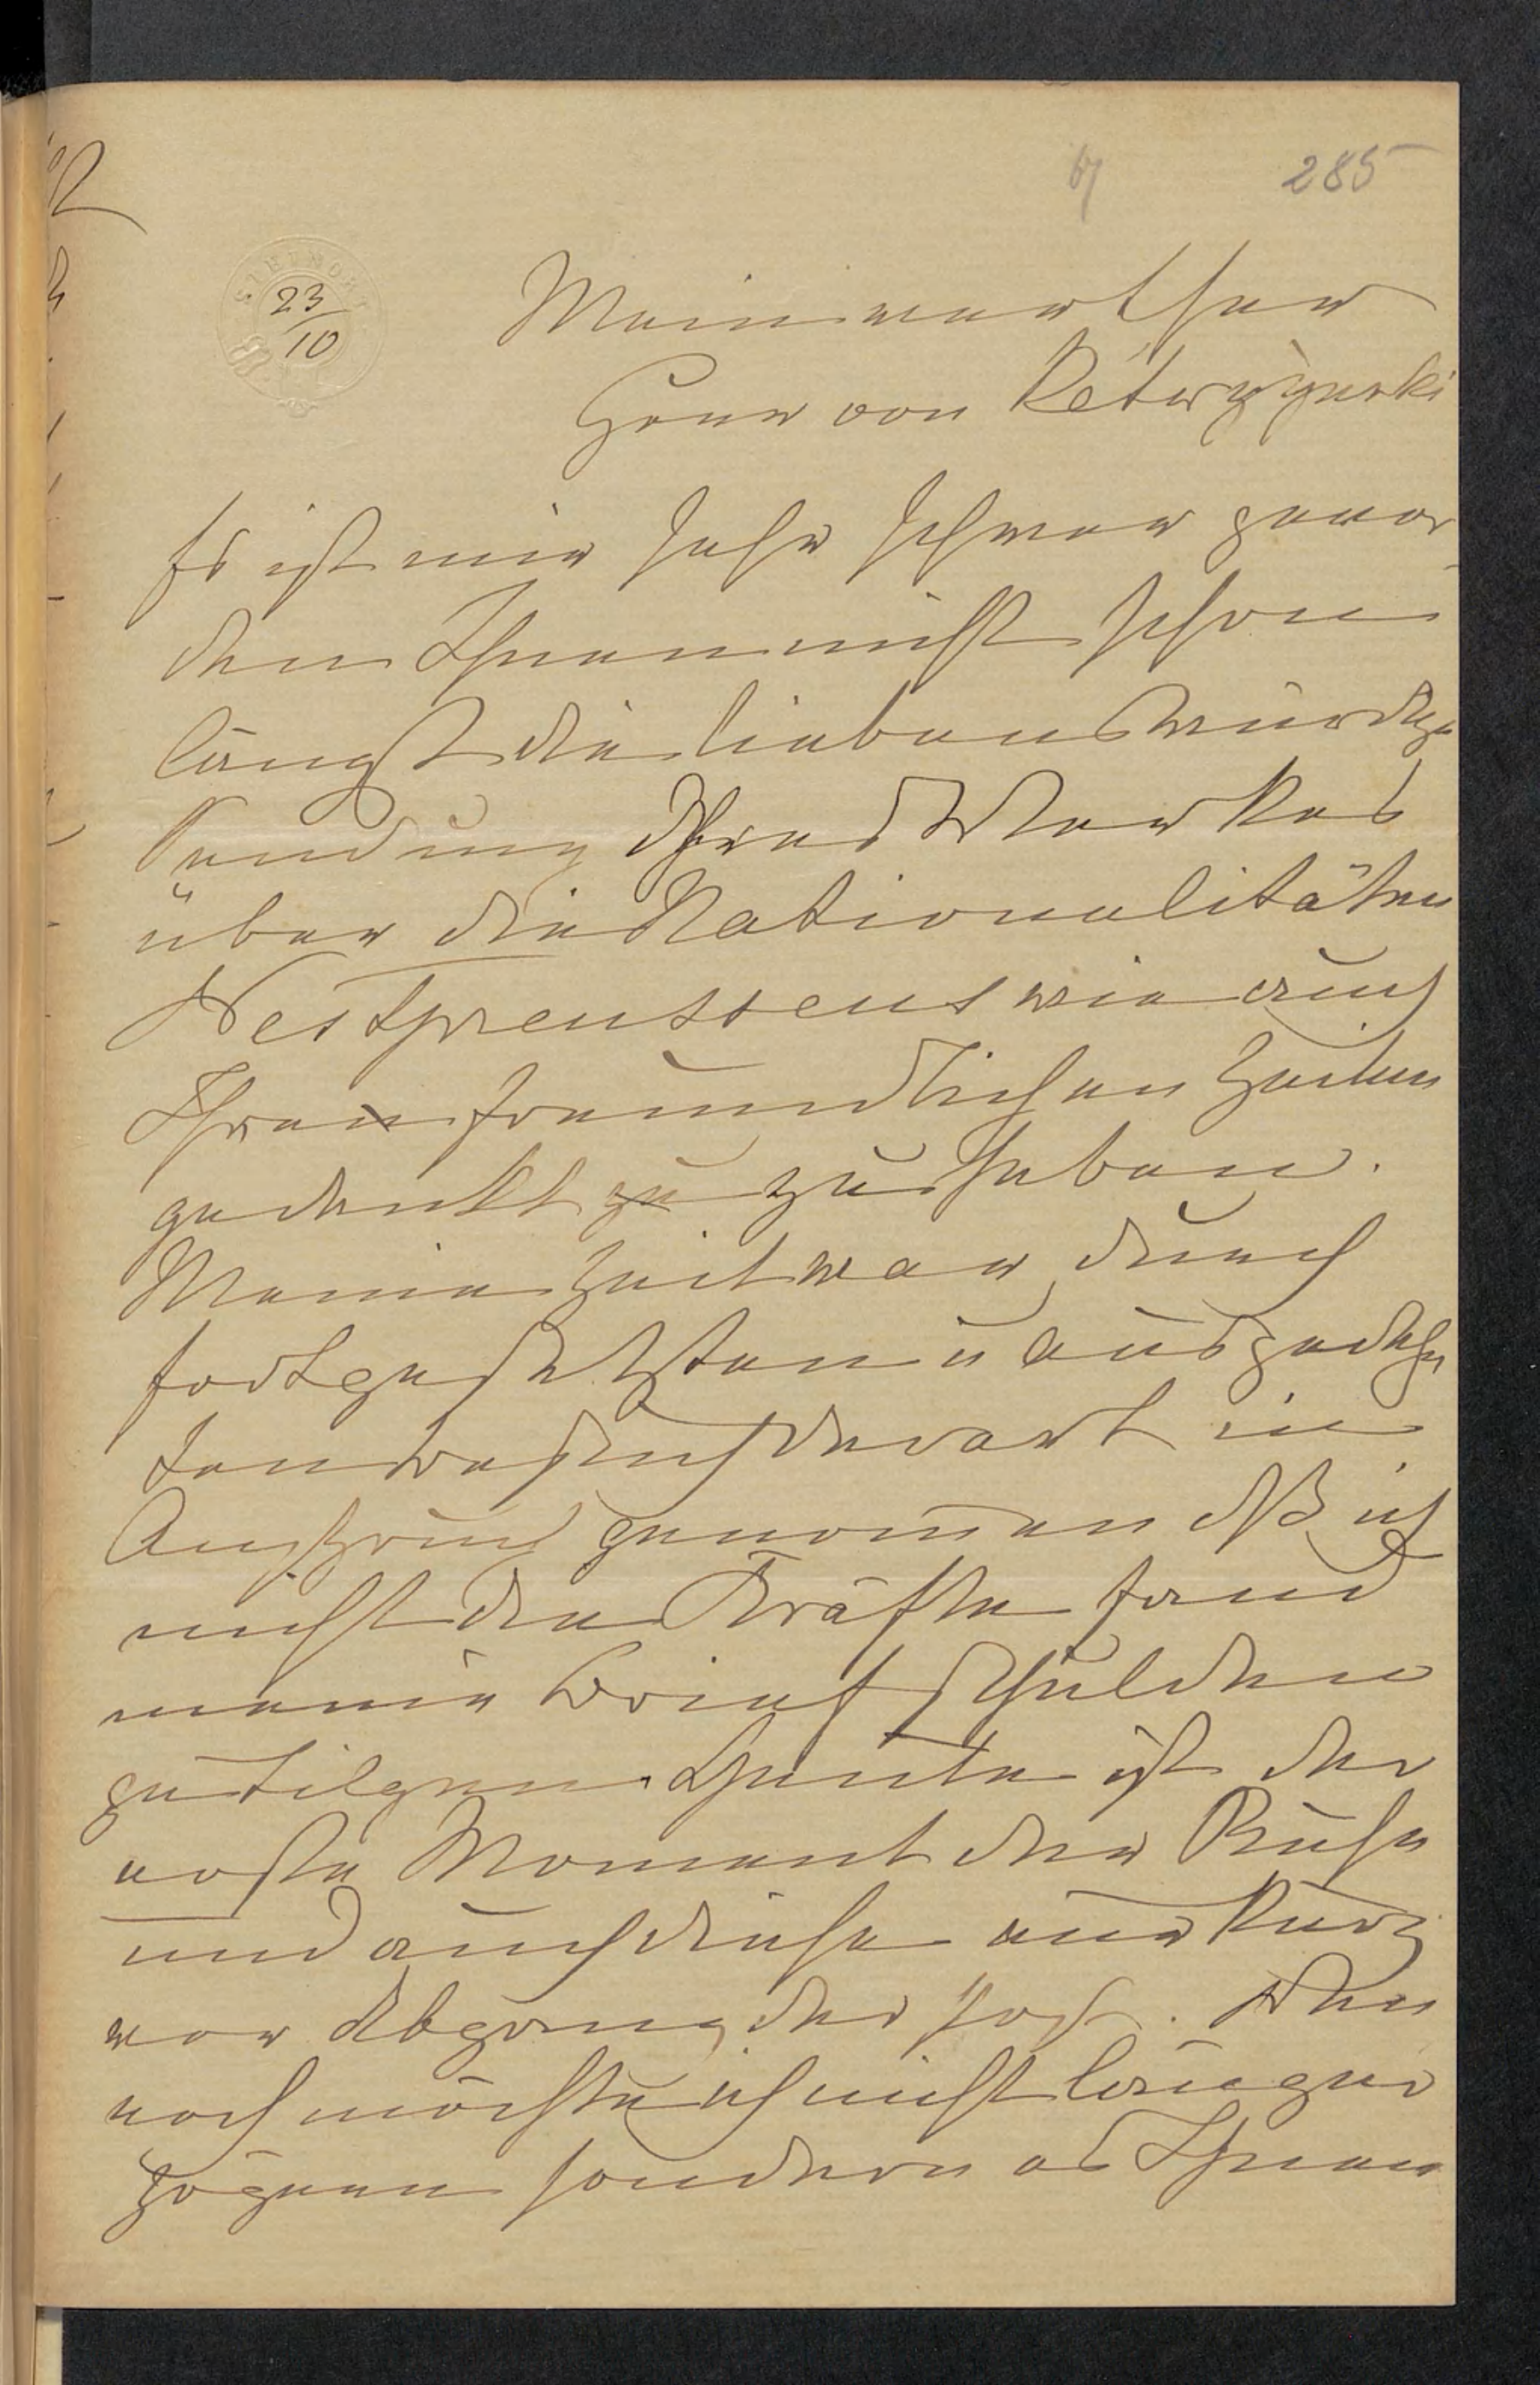 67 285
STEINORT
23/10
Mein werther
Herr von Ketrzynski
Es ist mir sehr schwer gewor-
den Ihnen nicht schon
längst die liebenswürdige
Sendung Ihres Werkes
über die Nationalitäten
Westpreussens wie auch
Ihren freundlichen Zeilen
gedankt zu zu haben.
Meine Zeit war durch
fortgesetzten u ausgedehn
ten Besuch derart in
Anspruch genommen dß ich
nicht die Kräfte fand
meine Briefschulden
zu tilgen. Heute ist der
erste Moment der Ruhe
und auch diese nur kurz
vor Abgang der Post. Den
noch möchte ich nicht länger
zögern sondern es Ihnen